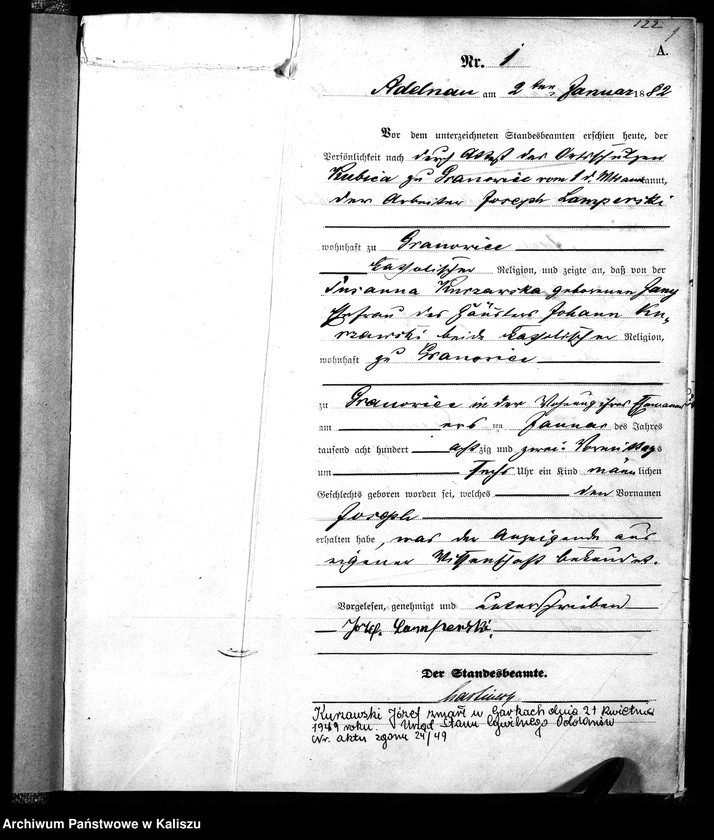 122
1
A.
Nr. 1
Adelnau am 2ten Januar 1882
Vor dem unterzeichneten Standesbeamten erschien heute, der
Persönlichkeit nach durch Attest des Ortsschulzen
Kubica zu Granowiec vom 1 d. Mts anerkannt,
der Arbeiter Joseph Lamperski
wohnhaft zu Granowiec
katholischer Religion, und zeigte an, daß von der
Susanna Kurzawska geborenen
Ehefrau des Häuslers Johann Ku-
rzawski beide katholischer Religion,
wohnhaft zu Granowiec
zu Granowiec in der Wohnung ihres Ehemannes
am ersten Januar des Jahres
tausend acht hundert achtzig und zwei Vormittags
um sechs Uhr ein Kind männlichen
Geschlechts geboren worden sei, welches den Vornamen
Joseph
erhalten habe, was der Anzeigende aus
eigener Wissenschaft bekundet.
Vorgelesen, genehmigt und unterschrieben
Józef Lamperski.
Der Standesbeamte.
Kurzawski Józef zmarł w Garkach dnia 21 kwietnia
1949 roku. Urząd Stanu Cywilnego Odolanów
Nr. aktu zgonu 24/49
Archiwum Państwowe w Kaliszu